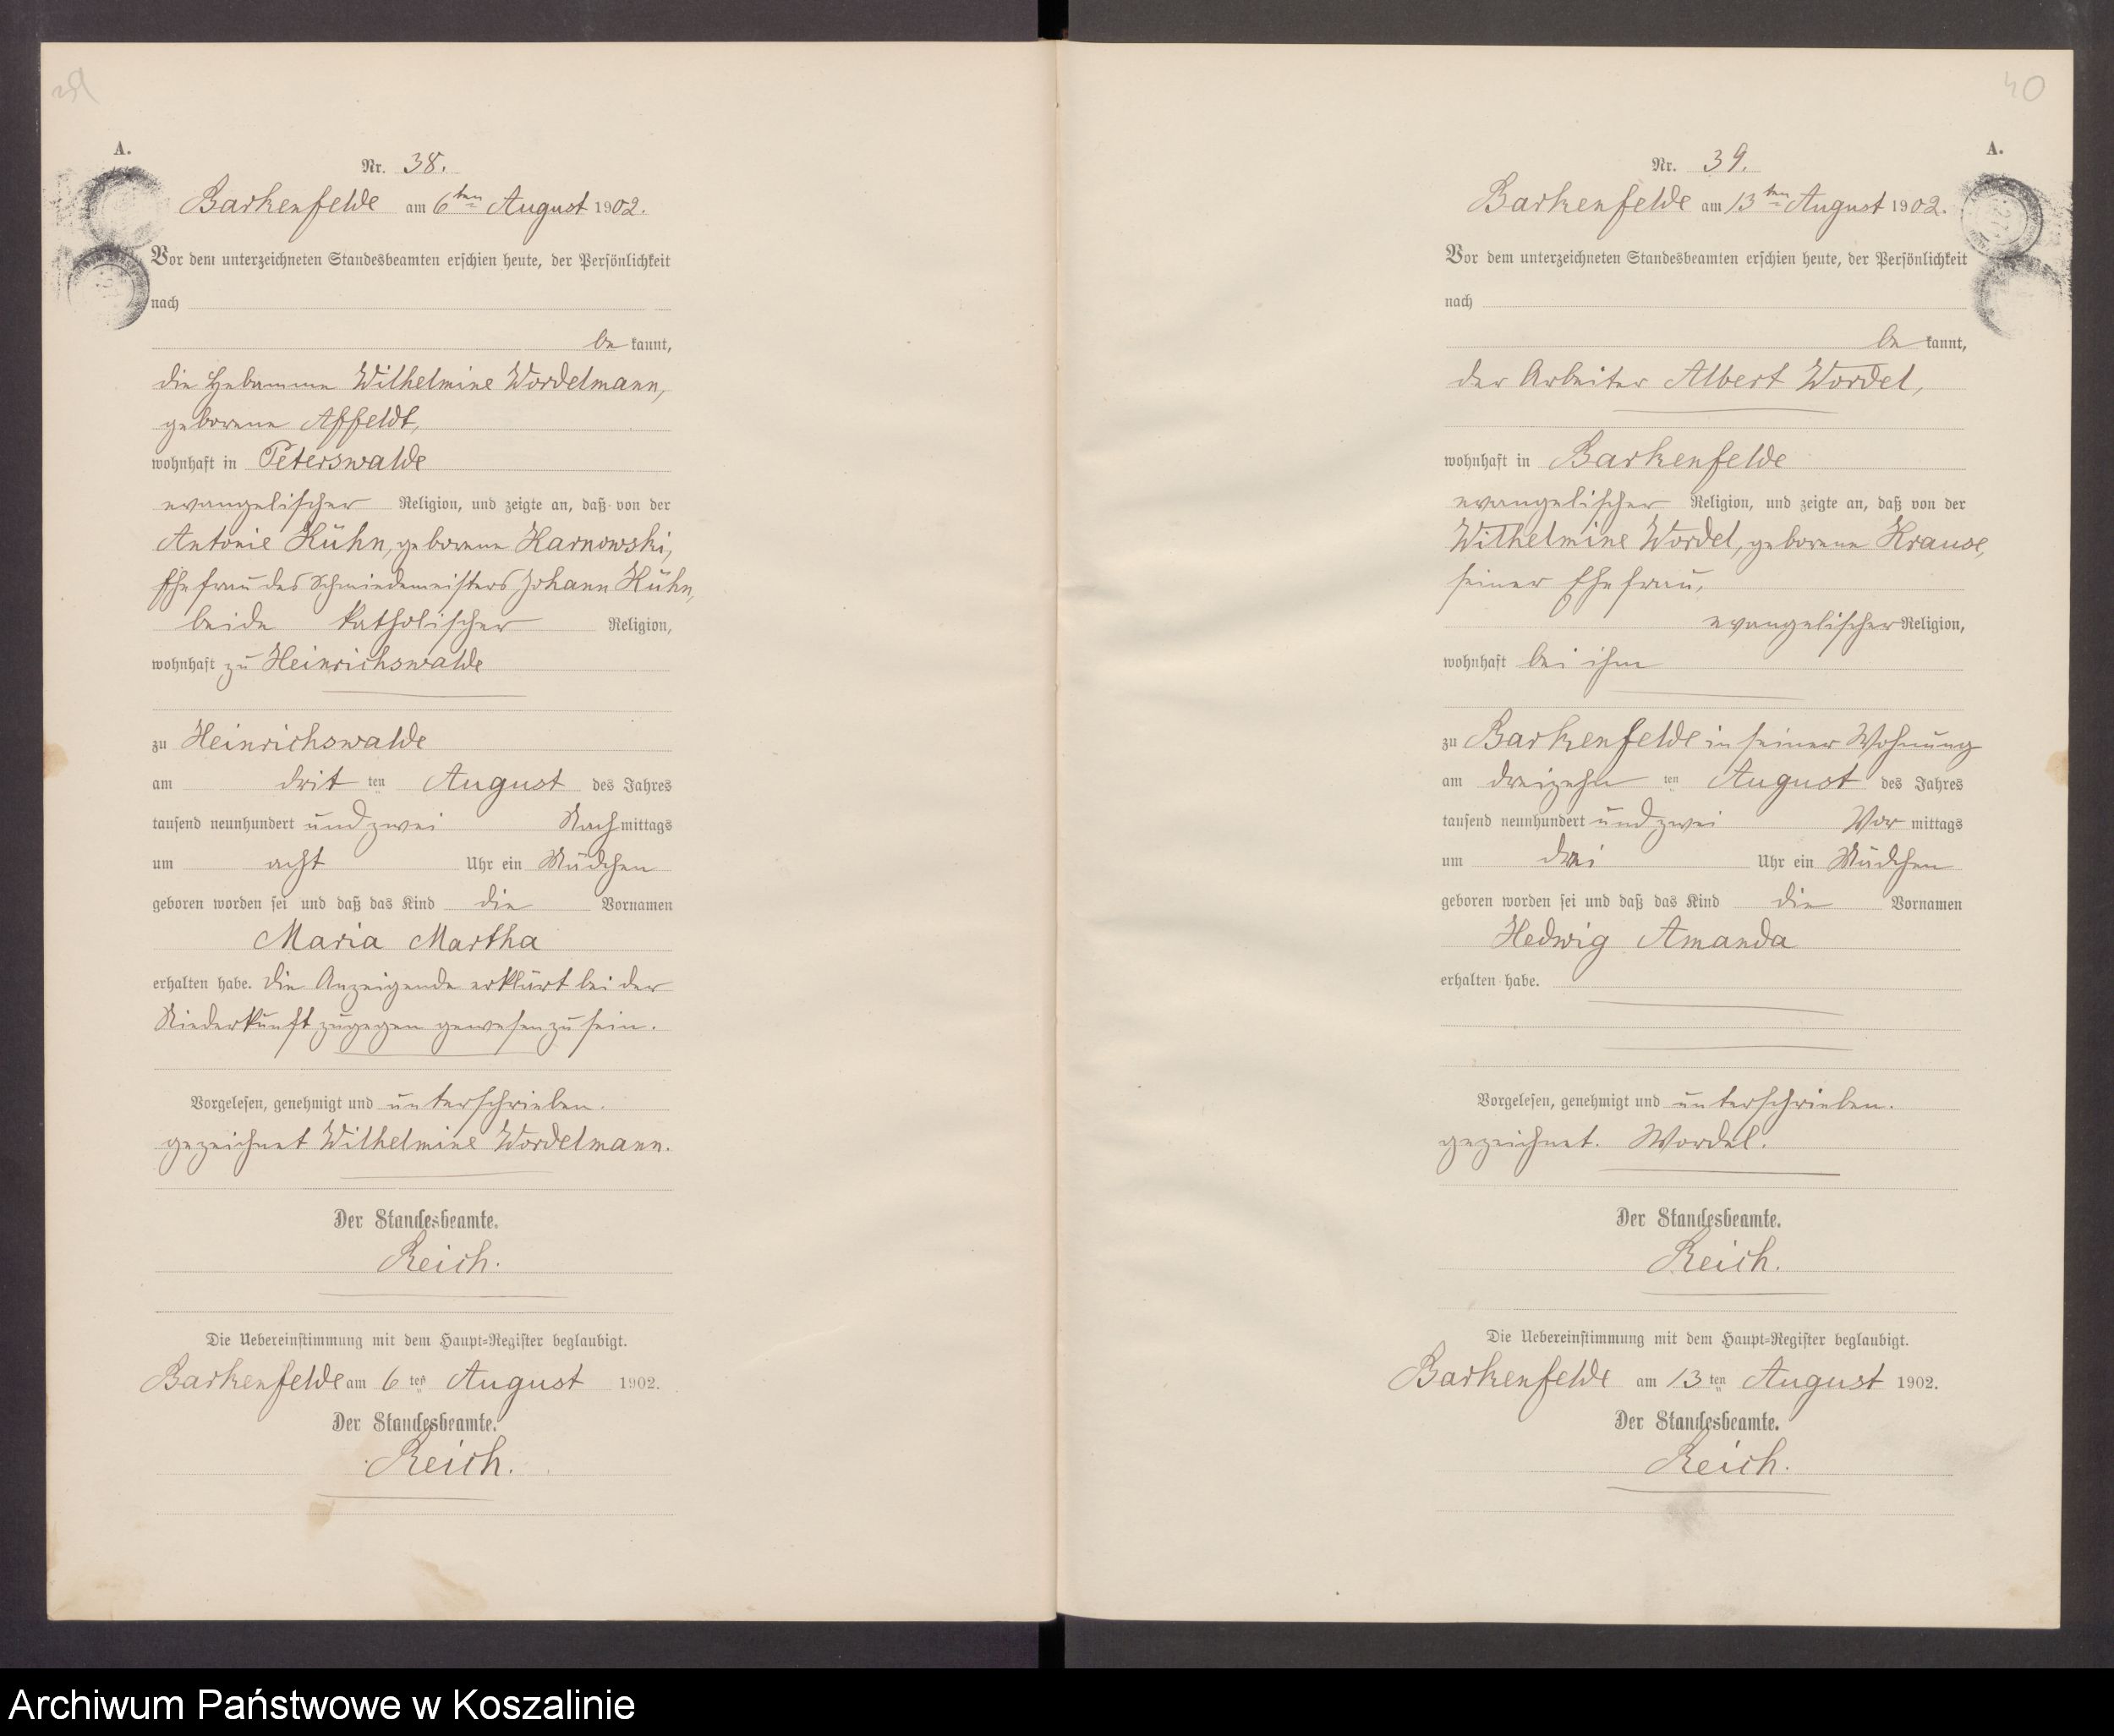 A.
Nr. 38.
Barkenfelde am 6ten August 1902.
Vor dem unterzeichneten Standesbeamten erschien heute, der Persönlichkeit
nach
be kannt,
die Hebamme Wilhelmine Wordelmann,
geborene Affeldt,
wohnhaft in Peterswalde
evangelischer Religion, und zeigte an, daß von der
Antonie Kühn, geborene Karnowski,
Ehefrau des Schmiedemeisters Johann Kühn,
beide katholischer Religion,
wohnhaft zu Heinrichswalde
zu Heinrichswalde
am drit ten August des Jahres
tausend neunhundert und zwei Nach mittags
um acht Uhr ein Mädchen
geboren worden sei und daß das Kind die Vornamen
Maria Martha
erhalten habe. Die Anzeigende erklärt bei der
Niederkunft zugegen gewesen zu sein.
Vorgelesen, genehmigt und unterschrieben.
gezeichnet Wilhelmine Wordelmann.
Der Standesbeamte.
Reich.
Die Uebereinstimmung mit dem Haupt-Register beglaubigt.
Barkenfelde am 6 ten August 1902.
Der Standesbeamte.
Reich.
40
A.
Nr. 39.
Barkenfelde am 13ten August 1902.
Vor dem unterzeichneten Standesbeamten erschien heute, der Persönlichkeit
nach
be kannt,
der Arbeiter Albert Wordel,
wohnhaft in Barkenfelde
evangelischer Religion, und zeigte an, daß von der
Wilhelmine Wordel, geborene Krause,
seiner Ehefrau,
evangelischer Religion,
wohnhaft bei ihm
zu Barkenfelde in seiner Wohnung
am dreizehn ten August des Jahres
tausend neunhundert und zwei Vor mittags
um drei Uhr ein Mädchen
geboren worden sei und daß das Kind die Vornamen
Hedwig Amanda
erhalten habe.
Vorgelesen, genehmigt und unterschrieben.
gezeichnet. Wordel.
Der Standesbeamte.
Reich.
Die Uebereinstimmung mit dem Haupt-Register beglaubigt.
Barkenfelde am 13 ten August 1902.
Der Standesbeamte.
Reich.
Archiwum Państwowe w Koszalinie